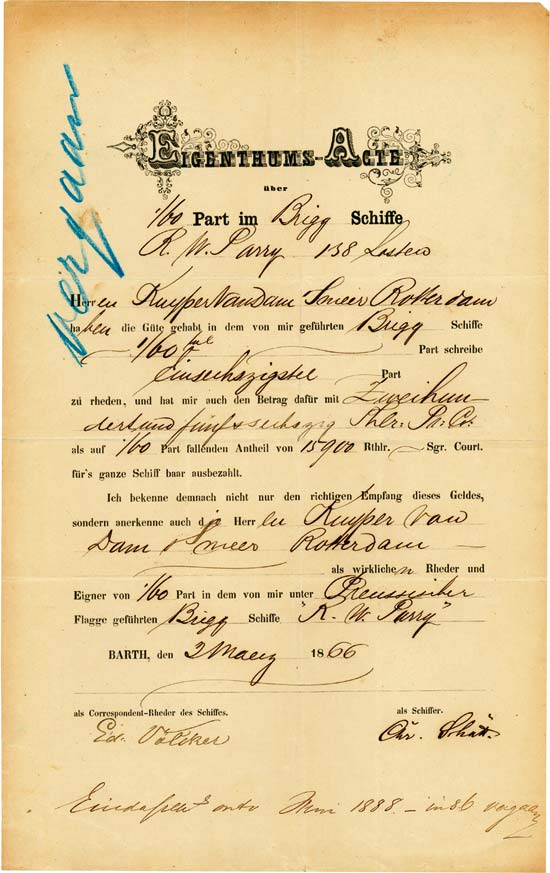 vergaan
EIGENTHUMS-ACTE
über
1/60 Part im Brigg Schiffe
R. W. Parry 138 Lasten
Herren Kuyper Van Dam & Smeer Rotterdam
haben die Güte gehabt in dem von mir geführten Brigg Schiffe
1/60 tel Part schreibe
Einsechszigstel Part
zu rheden, und hat mir auch den Betrag dafür mit Zweihun-
dertundfünfundsechszig Thlr. Pr. Ct.
als auf 1/60 Part fallenden Antheil von 15900 Rthlr. — Sgr. Court.
für's ganze Schiff baar ausbezahlt.
Ich bekenne demnach nicht nur den richtigen Empfang dieses Geldes,
sondern anerkenne auch die Herren Kuyper van
Dam & Smeer Rotterdam —
als wirklichen Rheder und
Eigner von 1/60 Part in dem von mir unter Preussischer
Flagge geführten Brigg Schiffe "R. W. Parry"
BARTH, den 2 Maerz 1866
als Correspondent-Rheder des Schiffes. als Schiffer.
Ed. Völcker Chr. Schütt
Juni 1888. — in 86 vergaan